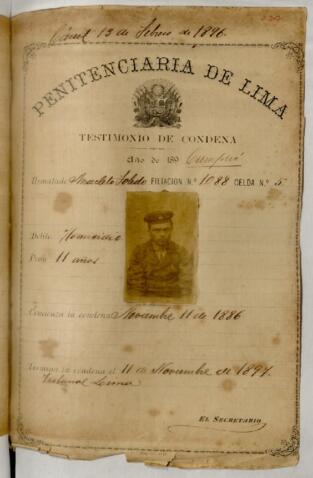 13 de Febro de 1896
PENITENCIARIA DE LIMA
TESTIMONIO DE CONDENA
Año de 189 Cumplió
Rematado Anacleto Toledo FILIACION N.º 1088 CELDA N.º 5
Delito Homicidio
Pena 11 años
Comienza la condena Noviembre 11 de 1886
Termina la condena el 11 de Noviembre de 1897
Tribunal Lima
EL SECRETARIO